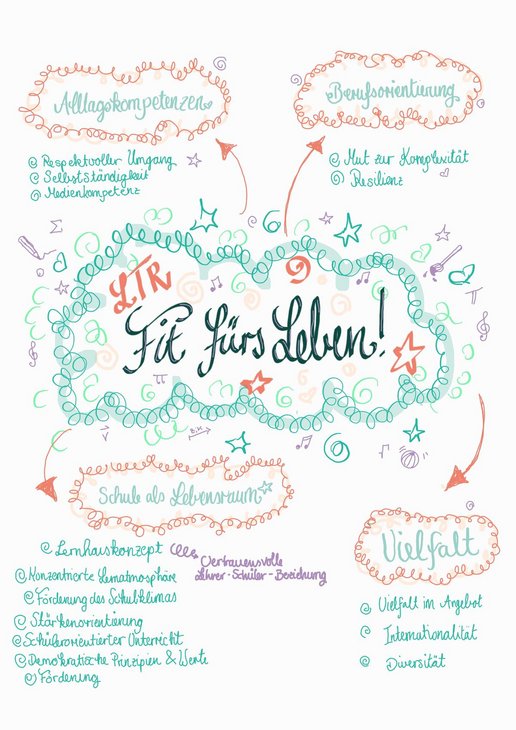 Alltagskompetenzen
Respektvoller Umgang
Selbstständigkeit
Medienkompetenz
Berufsorientierung
Mut zur Komplexität
Resilienz
LTR
Fit fürs Leben!
Schule als Lebensraum
Lernhauskonzept
Vertrauensvolle
Lehrer-Schüler-Beziehung
Konzentrierte Lernatmosphäre
Förderung des Schulklimas
Stärkenorientierung
Schülerorientierter Unterricht
Demokratische Prinzipien & Werte
Förderung
Vielfalt
Vielfalt im Angebot
Internationalität
Diversität